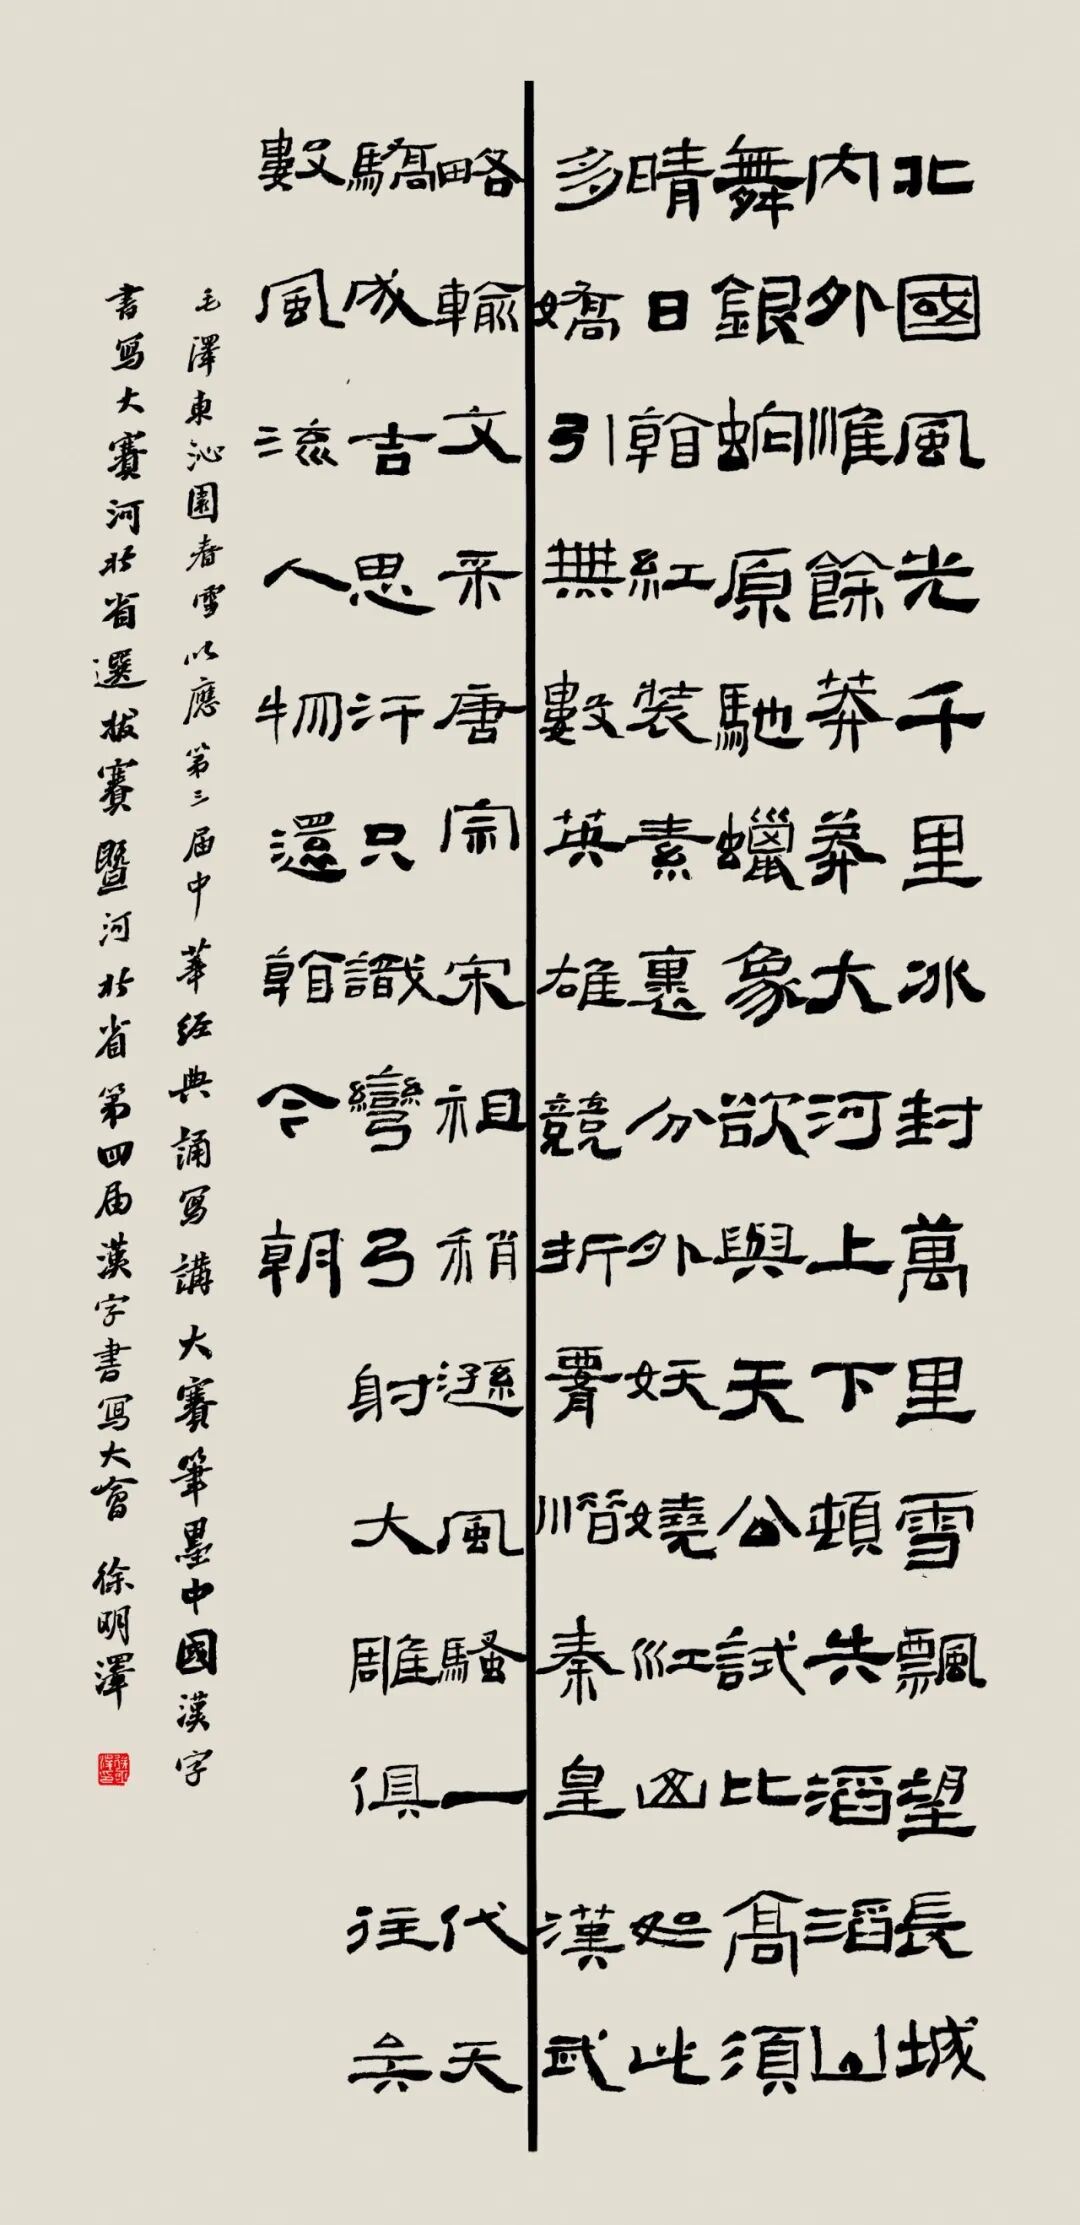 北國風光千里冰封萬里雪飄望長城
内外惟餘莽莽大河上下頓失滔滔山
舞銀蛇原馳蠟象欲與天公試比高須
晴日看紅裝素裹分外妖嬈江山如此
多嬌引無數英雄競折腰惜秦皇漢武
略輸文采唐宗宋祖稍遜風騷一代天
驕成吉思汗只識彎弓射大雕俱往矣
數風流人物還看今朝
毛澤東沁園春雪以應第三届中華經典誦寫講大賽筆墨中國漢字
書寫大賽河北省選拔賽暨河北省第四届漢字書寫大會 徐明澤